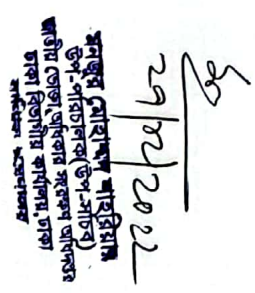 ২৭/০২/২০২২
মনজুর মোহাম্মদ শাহরিয়ার
উপ-পরিচালক(উপ-সচিব)
জাতীয় ভোক্তা অধিকার সংরক্ষণ অধিদপ্তর
ঢাকা বিভাগীয় কার্যালয়, ঢাকা